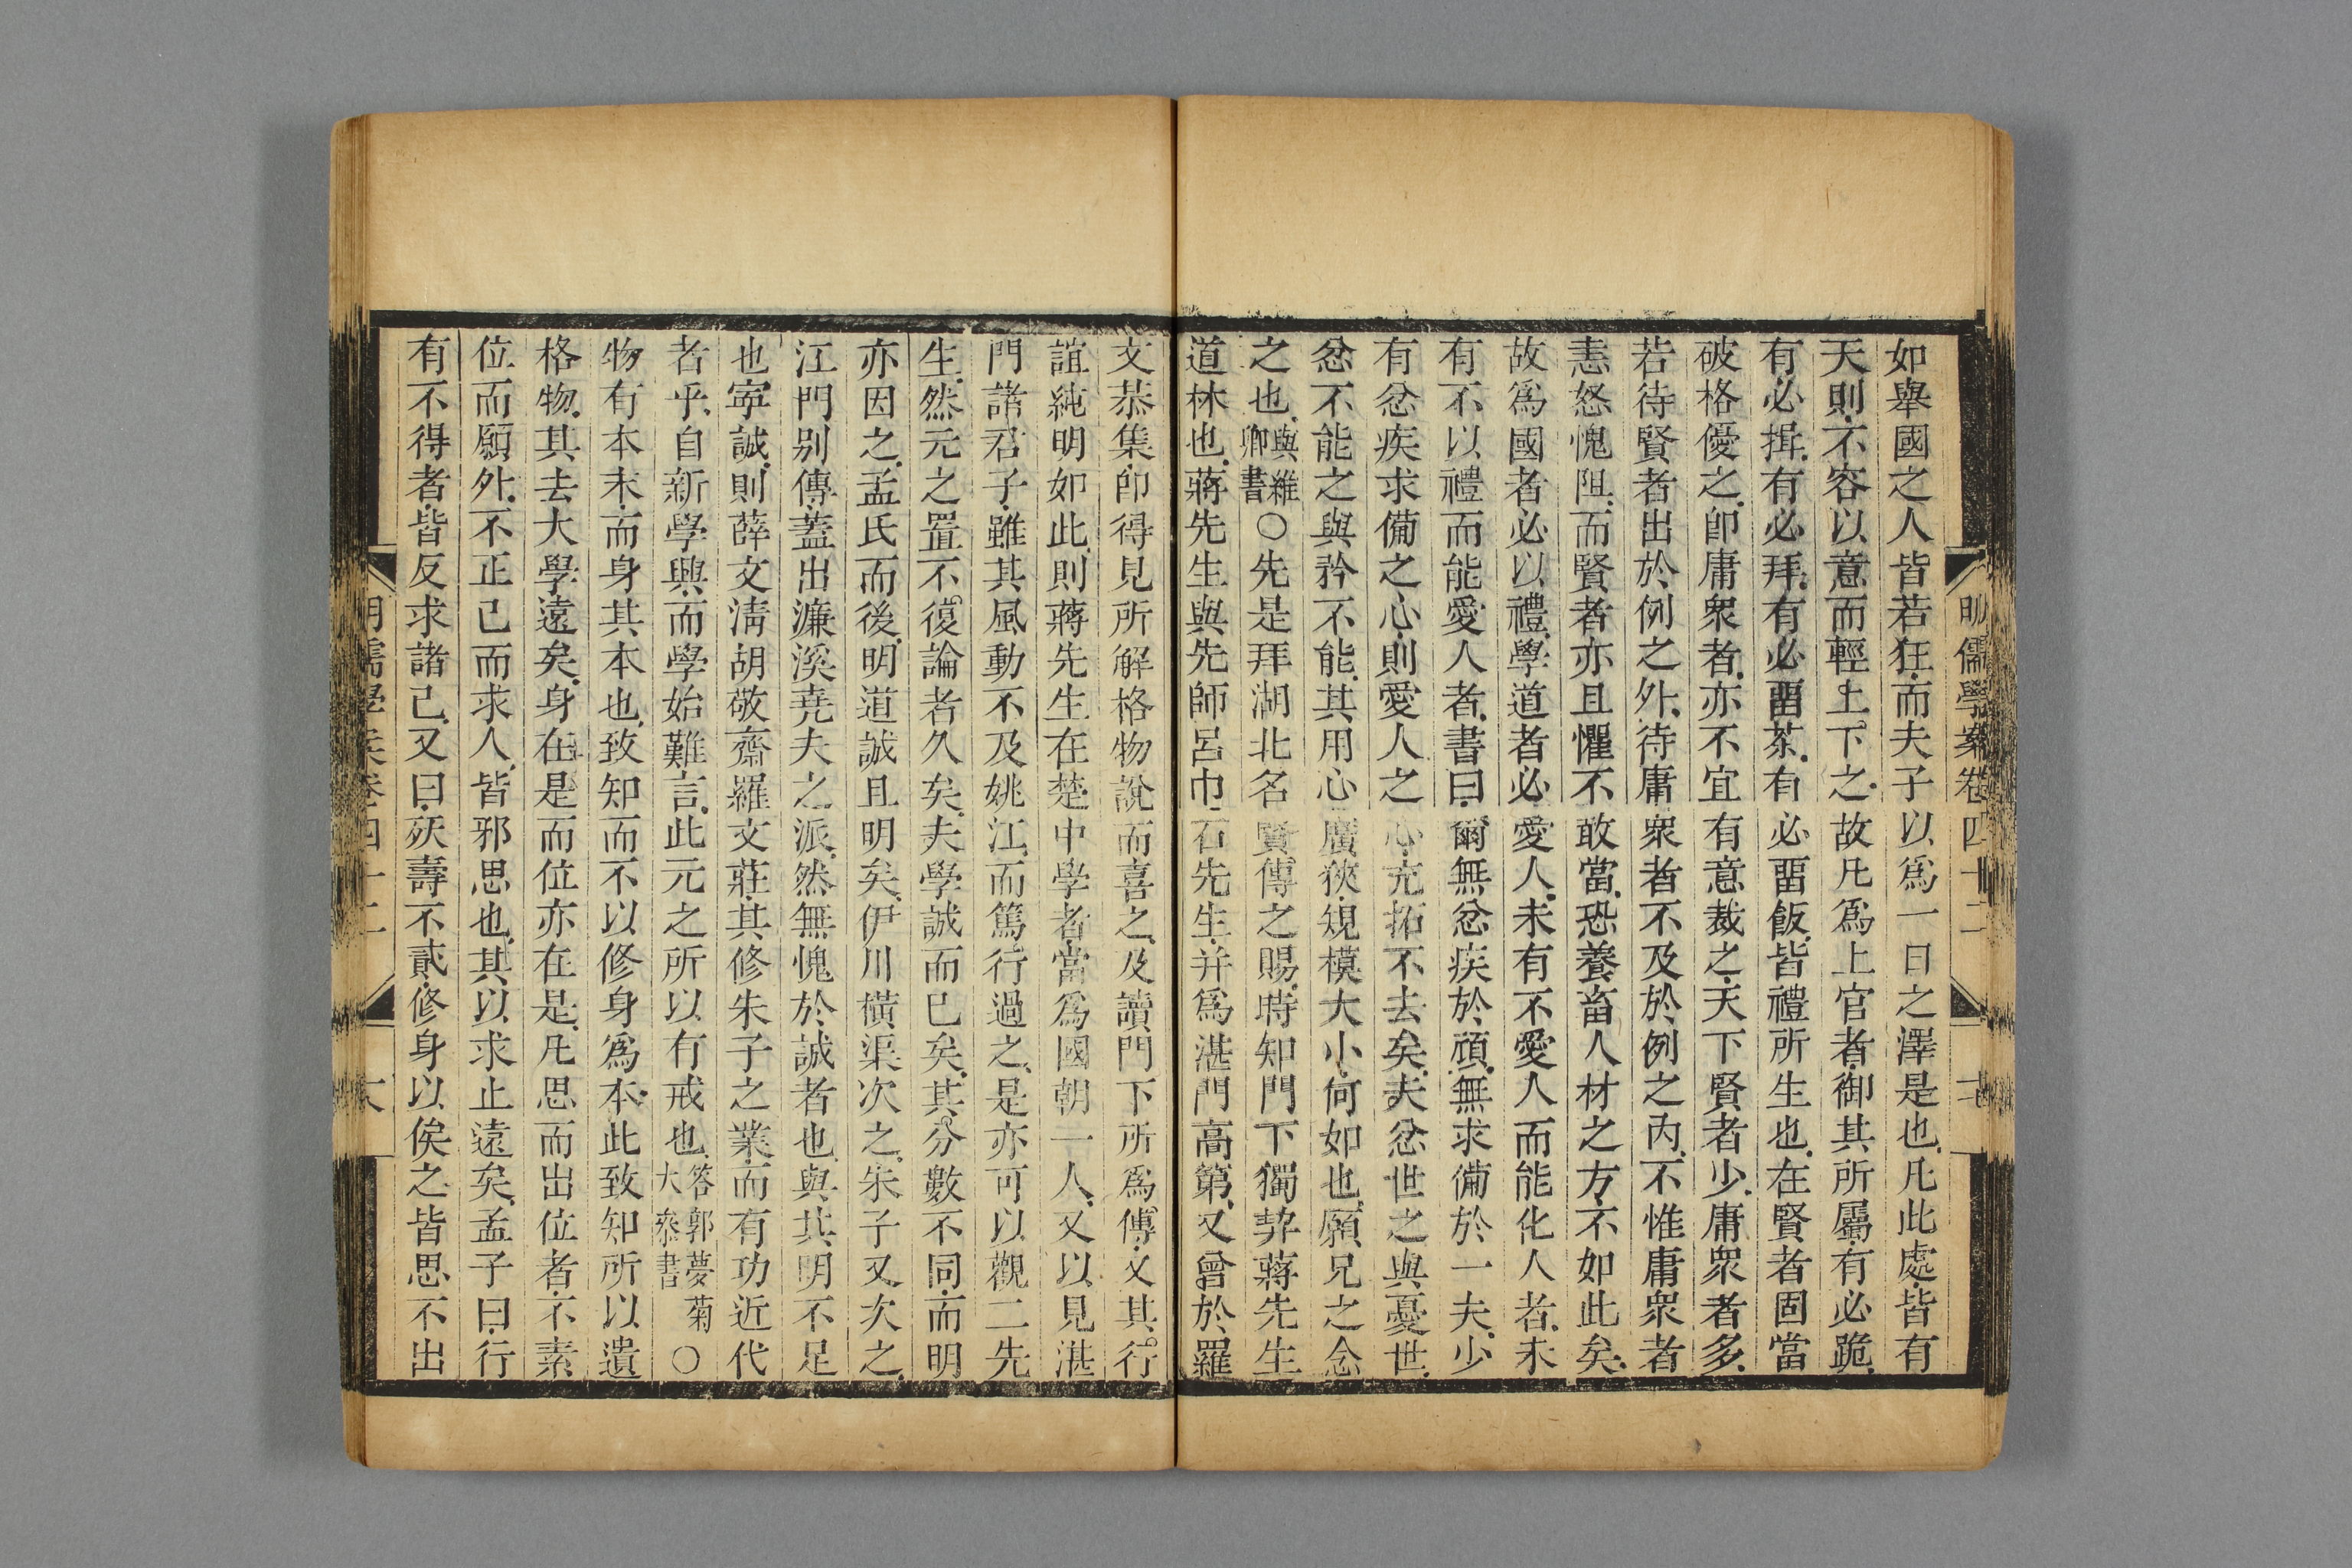 明儒學案卷四十二
如舉國之人皆若狂而夫子以爲一日之澤是也凡此處皆有
天則不容以意而輕上下之故凡爲上官者御其所屬有必跪
有必揖有必拜有必畱茶有必畱飯皆禮所生也在賢者固當
破格優之卽庸衆者亦不宜有意裁之天下賢者少庸衆者多
若待賢者出於例之外待庸衆者不及於例之內不惟庸衆者
恚怒愧阻而賢者亦且懼不敢當恐養畜人材之方不如此矣
故爲國者必以禮學道者必愛人未有不愛人而能化人者未
有不以禮而能愛人者書曰爾無忿疾於頑無求備於一夫少
有忿疾求備之心則愛人之心充拓不去矣夫忿世之與憂世
忿不能之與矜不能其用心廣狹規模大小何如也願兄之念
之也與維卿書○先是拜湖北名賢傳之賜時知門下獨契蔣先生
道林也蔣先生與先師呂巾石先生并爲湛門高第又曾於羅
文恭集卽得見所解格物說而喜之及讀門下所爲傳文其行
誼純明如此則蔣先生在楚中學者當爲國朝一人又以見湛
門諸君子雖其風動不及姚江而篤行過之是亦可以觀二先
生然元之置不復論者久矣夫學誠而已矣其分數不同而明
亦因之孟氏而後明道誠且明矣伊川橫渠次之朱子又次之
江門别傳蓋出濂溪堯夫之派然無愧於誠者也與其明不足
也寧誠則薛文淸胡敬齋羅文莊其修朱子之業而有功近代
者乎自新學興而學始難言此元之所以有戒也答郭夢菊大叅書○
物有本末而身其本也致知而不以修身爲本此致知所以遺
格物其去大學遠矣身在是而位亦在是凡思而出位者不素
位而願外不正己而求人皆邪思也其以求止遠矣孟子曰行
有不得者皆反求諸己又曰殀壽不貳修身以俟之皆思不出